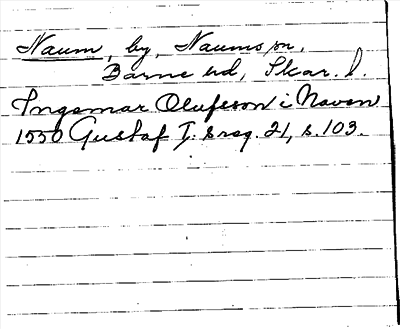 Naum, by, Naums sn,
Barne hd, Skar. l.
Ingemar Olufsson i Navem
1550 Gustaf I:s reg. 21, s. 103.